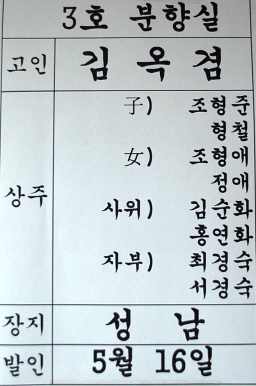 3호 분향실
고인 김 옥 겸
상주 子) 조형준
형철
女) 조형애
정애
사위) 김순화
홍연화
자부) 최경숙
서경숙
장지 성 남
발인 5월 16일